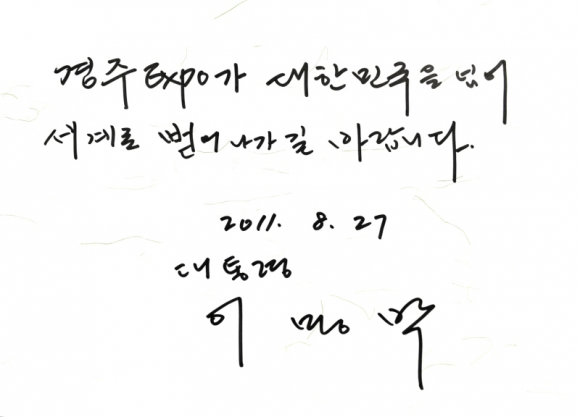 경주 Expo가 대한민국을 넘어
세계로 뻗어 나가길 바랍니다.
2011. 8. 27
대통령
이 명 박